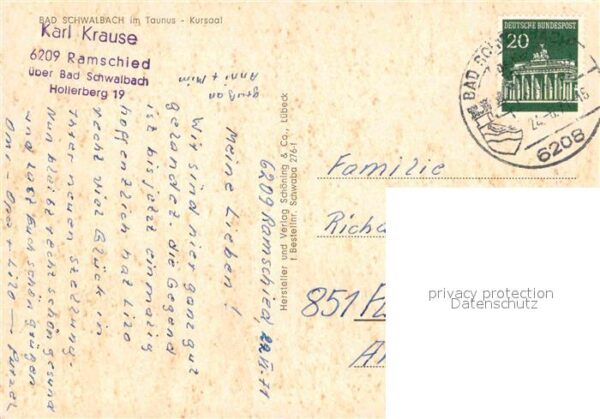 BAD SCHWALBACH im Taunus - Kursaal
Karl Krause
6209 Ramschied
über Bad Schwalbach
Hollerberg 19
gruß an
Anni + Mim
6209 Ramschied 22.VI.71
Meine Lieben!
Wir sind hier ganz gut
gelandet. die Gegend
ist bis jetzt einmalig
hoffentlich hat Lilo
recht viel Glück in
Ihrer neuen Stellung.
Nun bleibt recht schön gesund
und lasst Euch schön grüßen
Omi - Opa + Lilo
Hersteller und Verlag Schöning & Co., Lübeck
Bestellnr. Schwaba 276-1
DEUTSCHE BUNDESPOST
20
BAD
6208
Familie
Richa
851 Fü
A
privacy protection
Datenschutz